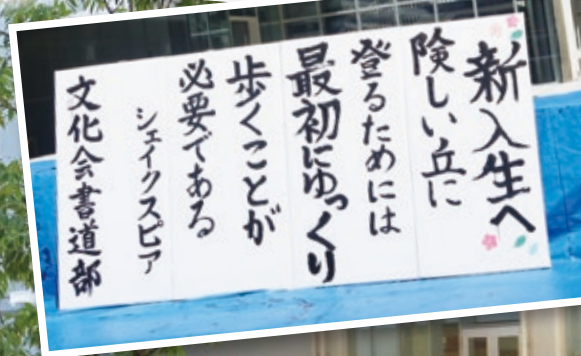 新入生へ
険しい丘に
登るためには
最初にゆっくり
歩くことが
必要である
シェイクスピア
文化会書道部